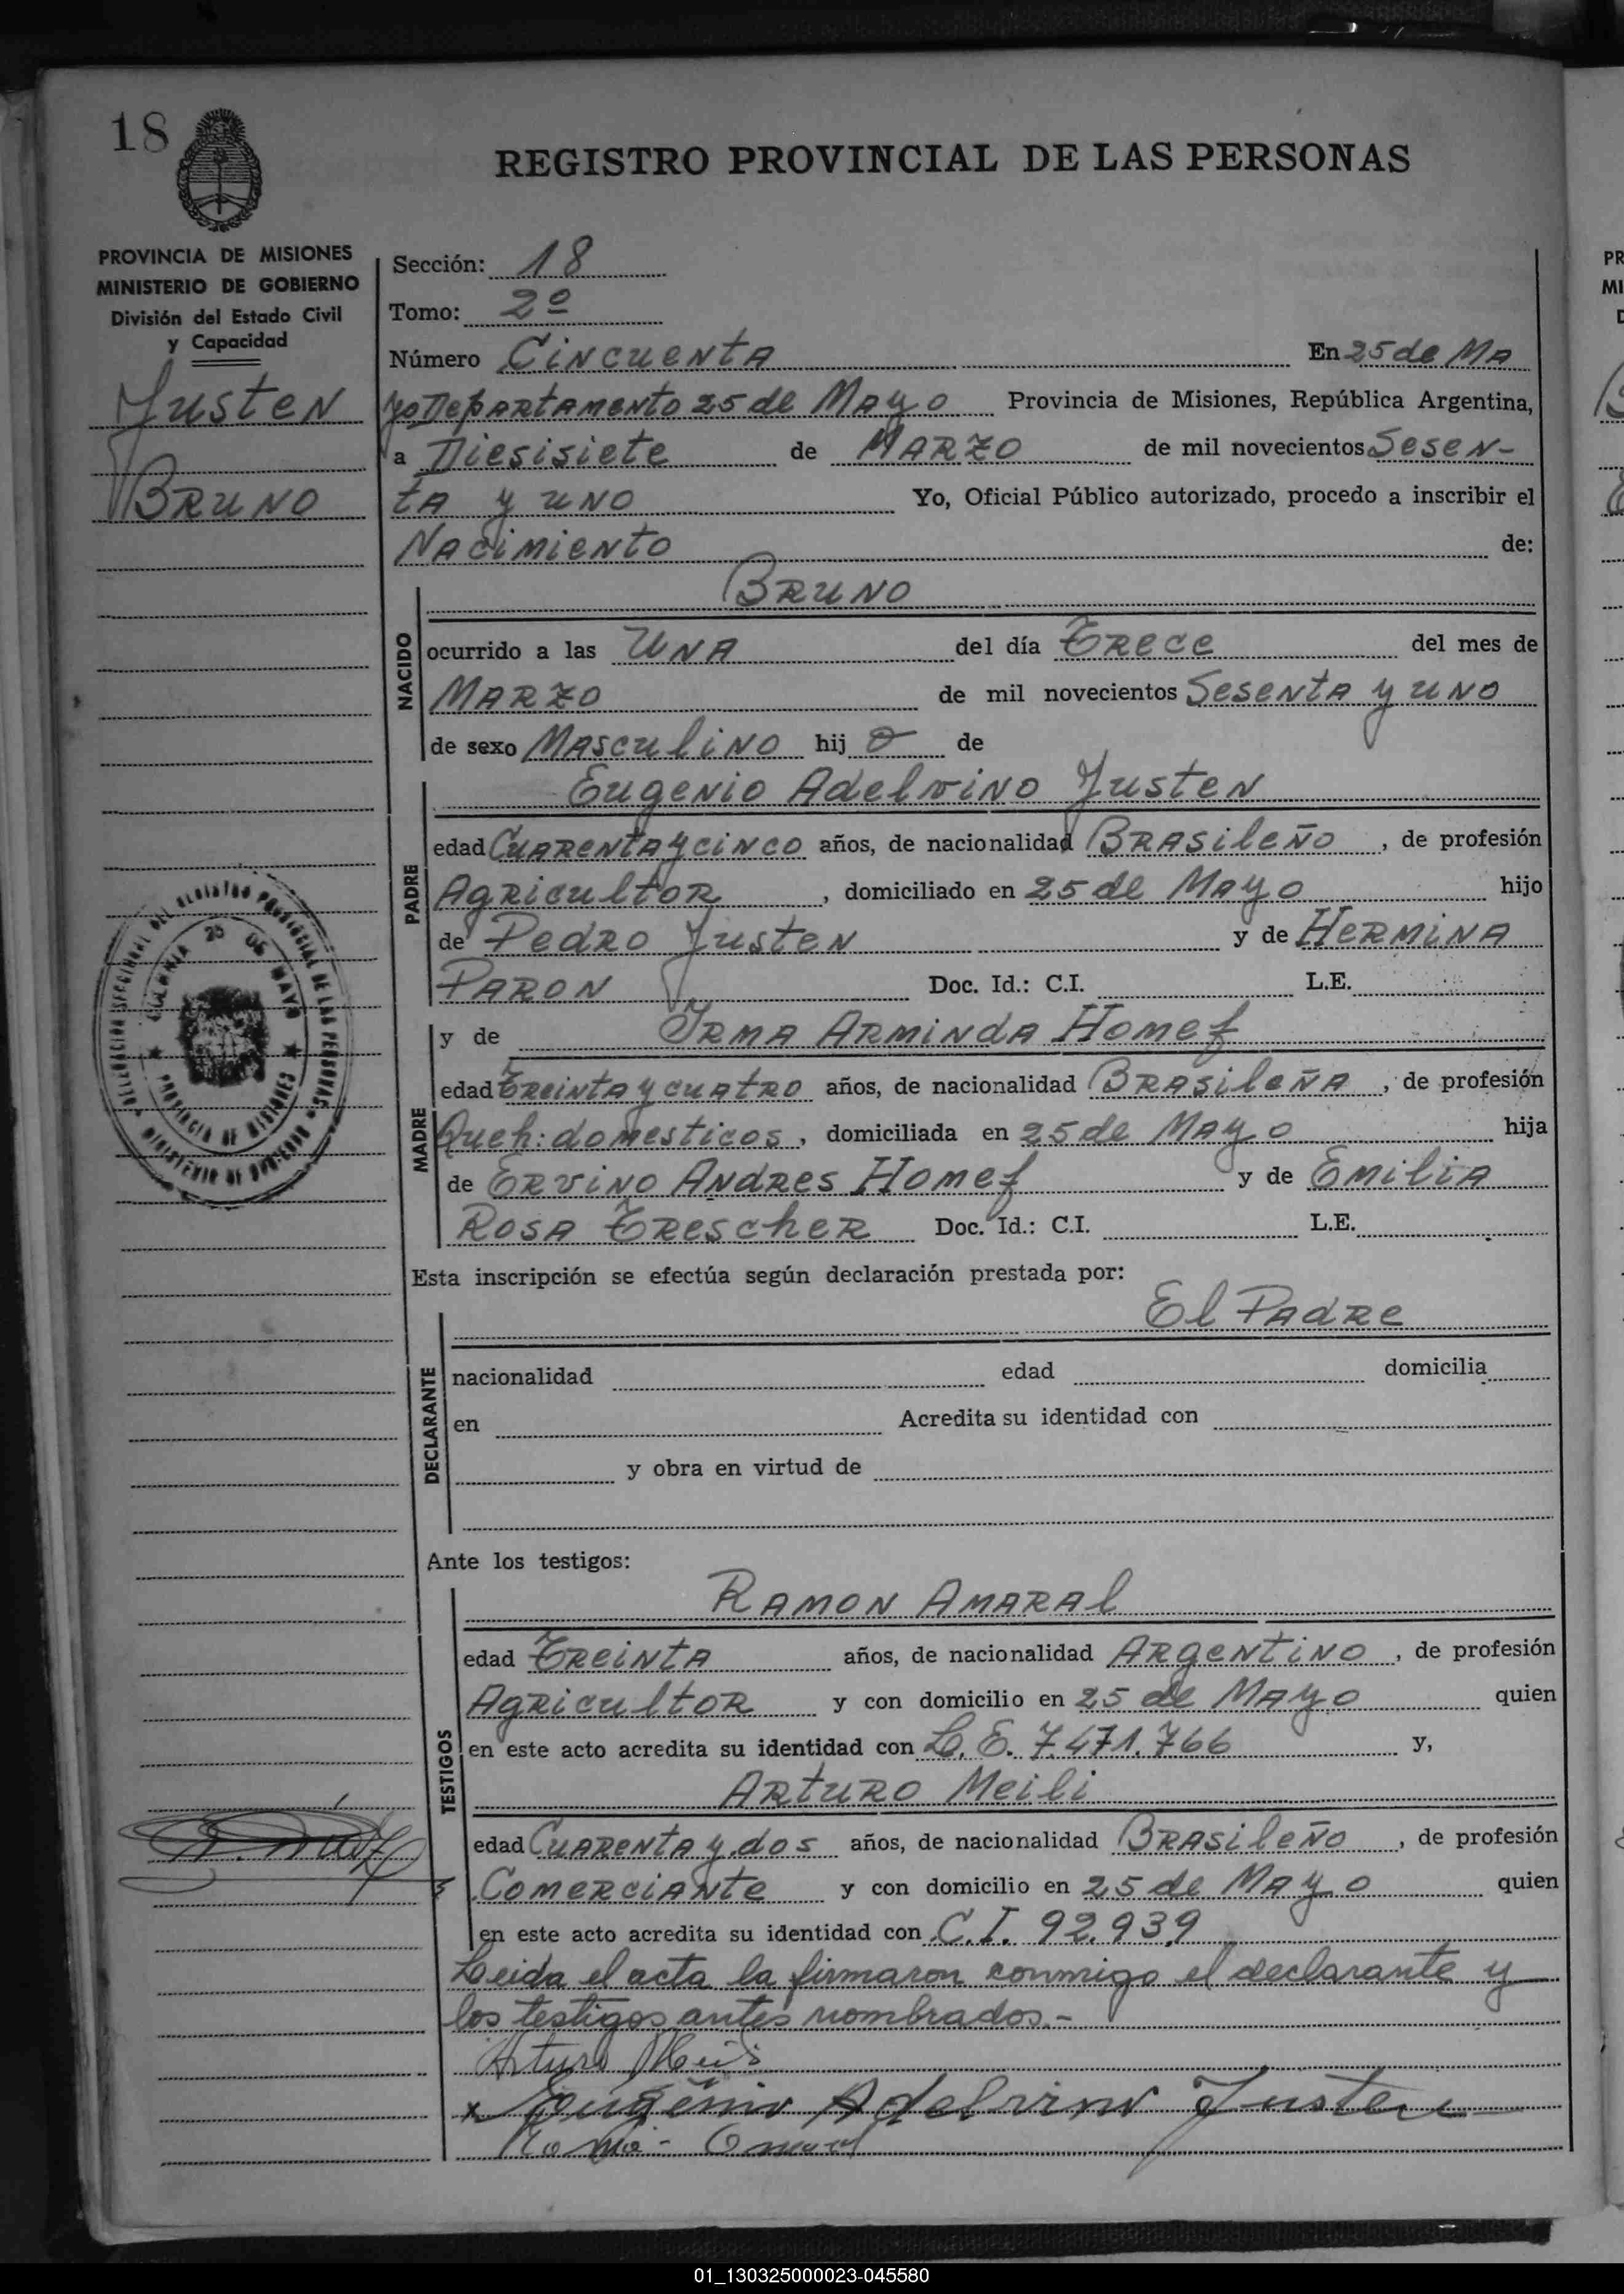 18
REGISTRO PROVINCIAL DE LAS PERSONAS
PROVINCIA DE MISIONES
MINISTERIO DE GOBIERNO
División del Estado Civil
y Capacidad
Justen
Bruno
Sección: 18
Tomo: 2º
Número Cincuenta En 25 de Ma
yo Departamento 25 de Mayo Provincia de Misiones, República Argentina,
a Diesisiete de Marzo de mil novecientos Sesen-
ta y uno Yo, Oficial Público autorizado, procedo a inscribir el
Nacimiento de:
NACIDO
Bruno
ocurrido a las Una del día Trece del mes de
Marzo de mil novecientos Sesenta y uno
de sexo Masculino hij o de
PADRE
Eugenio Adelvino Justen
edad Cuarenta y cinco años, de nacionalidad Brasileño, de profesión
Agricultor, domiciliado en 25 de Mayo hijo
de Pedro Justen y de Hermina
Paron Doc. Id.: C.I. L.E.
MADRE
y de Irma Arminda Homef
edad Treinta y cuatro años, de nacionalidad Brasileña, de profesión
Queh: domesticos, domiciliada en 25 de Mayo hija
de Ervino Andres Homef y de Emilia
Rosa Trescher Doc. Id.: C.I. L.E.
Esta inscripción se efectúa según declaración prestada por:
DECLARANTE
El Padre
nacionalidad edad domicilia
en Acredita su identidad con
y obra en virtud de
Ante los testigos:
TESTIGOS
Ramon Amaral
edad Treinta años, de nacionalidad Argentino, de profesión
Agricultor y con domicilio en 25 de Mayo quien
en este acto acredita su identidad con L.E. 7.471.766 y,
Arturo Meili
edad Cuarenta y dos años, de nacionalidad Brasileño, de profesión
Comerciante y con domicilio en 25 de Mayo quien
en este acto acredita su identidad con C.I. 92.939
Leida el acta la firmaron conmigo el declarante y
los testigos antes nombrados.-
Arturo Meili
x Eugênio Adelvino Justen
COLONIA 25 DE MAYO
PROVINCIA DE MISIONES
01_130325000023-045580